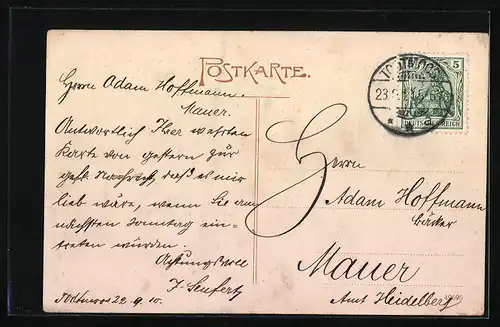 POSTKARTE.
Herrn Adam Hoffmann.
Mauer.
Antwortlich Ihrer werthen
Karte von gestern zur
gefl. Nachricht, daß es mir
lieb wäre, wenn Sie am
nächsten Sonntag ein-
treten würden.
Achtungsvoll
J. Seufert
Todtmoos 22.9.10.
TODTMOOS
23.9.
5
DEUTSCHES REICH
Herrn
Adam Hoffmann
Bäcker
Mauer
Amt Heidelberg